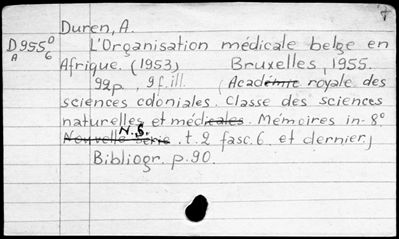 Duren, A.
D955 0/6 A
L'Organisation médicale belge en
Afrique. (1953) Bruxelles, 1955.
92p., 9f.ill. (Académie royale des
sciences coloniales. Classe des sciences
naturelles et médicales. Mémoires in-8°
Nouvelle série N.S. t.2 fasc.6 et dernier)
Bibliogr. p.90.